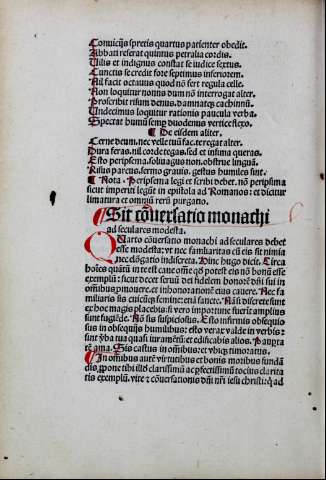 Conuicijs spretis quartus patienter obedit.
Abbati reserat quintus petralia cordis.
Uilis et indignus constat se iudice sextus.
Cunctis se credit fore septimus inferiorem.
Nil facit octauus quod nō fert regula cellę.
Non loquitur nonus dum nō interrogat alter.
Proscribit risum denus, damnatq; cachinnū.
Undecimus loquitur rationis paucula verba.
Spectat humū semꝑ duodenus vertice flexo.
¶ De eisdem aliter.
Cerne deum. nec velle tuū fac. te regat alter.
Dura feras. nil corde tegas. sed et infima queras.
Esto peripsema. soliuagus non. obstrue linguā.
Risus parcus. sermo grauis. gestus humiles sint.
¶ Nota. Peripsema legi et scribi debet. nō peripsima
sicut imperiti legūt in epistola ad Romanos: et dicitur
limatura et omniū rerū purgatio.
¶ Sit cōuersatio monachi
ad seculares modesta.
Quarto cōuersatio monachi ad seculares debet
esse modesta: vt nec familiaritas cū eis sit nimia
nec elōgatio indiscreta. Dinc hugo dicit. Circa
hoīes quātū in te est caue
exemplū: sicut decet seruū dei fidelem honorē dn̄i sui in
omībus ꝓmouere. et inhonorationē eius cauere. Nec fa
miliaris sis cuicūq; femine: etiā sancte. Nā indiscrete sunt
ex hoc magis placebis: si vero importune fuerīt amplius
sunt fugiēde. Nō sis suspiciosus. Esto infirmis obsequio
sus in obsequijs humilibus: esto verax valde in verbis:
sunt ꝟba tua quasi iuramētū: et edificabis alios. Pauꝑta
tē ama. Sis castus in omībus: et vbiq; timoratus.
¶ In omībus autē virtutibus et bonis moribus fundā
dis, ꝓpone tibi illd clarissimū ac ꝑfectissimū totius clarita
tis exemplū, vite et cōuersationis dn̄i nr̄i iesu christi: qd ad